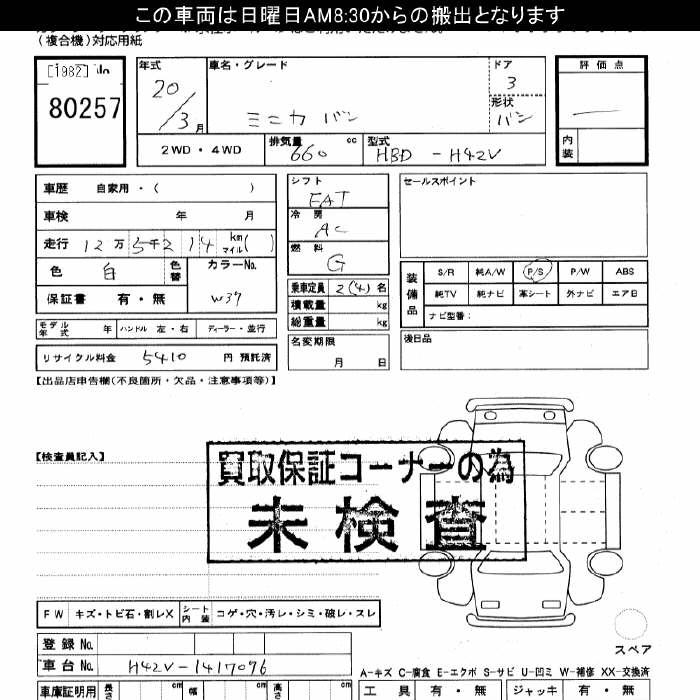 この車両は日曜日AM8:30からの搬出となります
(複合機)対応用紙
[1982] No
80257
年式
20/3月
車名・グレード
ミニカ バン
ドア
3
形状
バン
評価点
—
内装
2WD・4WD
排気量
660 cc
型式
HBD-H42V
車歴 自家用・( )
車検 年 月
走行 12万5千214 km マイル( )
色 白 色替
カラーNo.
W37
保証書 有・無
シフト
FAT
冷房
AC
燃料
G
乗車定員 2(4)名
積載量 kg
総重量 kg
セールスポイント
装備品
S/R 純A/W P/S P/W ABS
純TV 純ナビ 革シート 外ナビ エアB
ナビ型番:
モデル年式 年 ハンドル 左・右 ディーラー・並行
名変期限
月 日
後日品
リサイクル料金 5410 円 預託済
【出品店申告欄(不良箇所・欠品・注意事項等)】
【検査員記入】
買取保証コーナーの為
未検査
FW キズ・トビ石・割レX シート内装 コゲ・穴・汚レ・シミ・破レ・スレ
スペア
登録No.
車台No. H42V-1417096
A-キズ C-腐食 E-エクボ S-サビ U-凹ミ W-補修 XX-交換済
車庫証明用 長さ cm 幅 cm 高さ cm
工具 有・無 ジャッキ 有・無